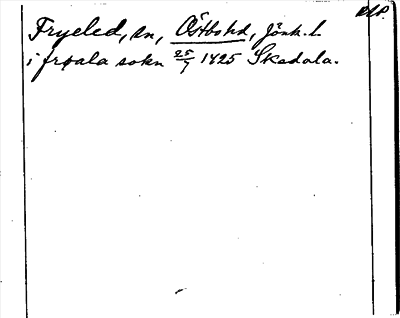 Fryeled, sn, Östbo hd, Jönk. l.
i frøala sokn 25/7 1425 Skedala.